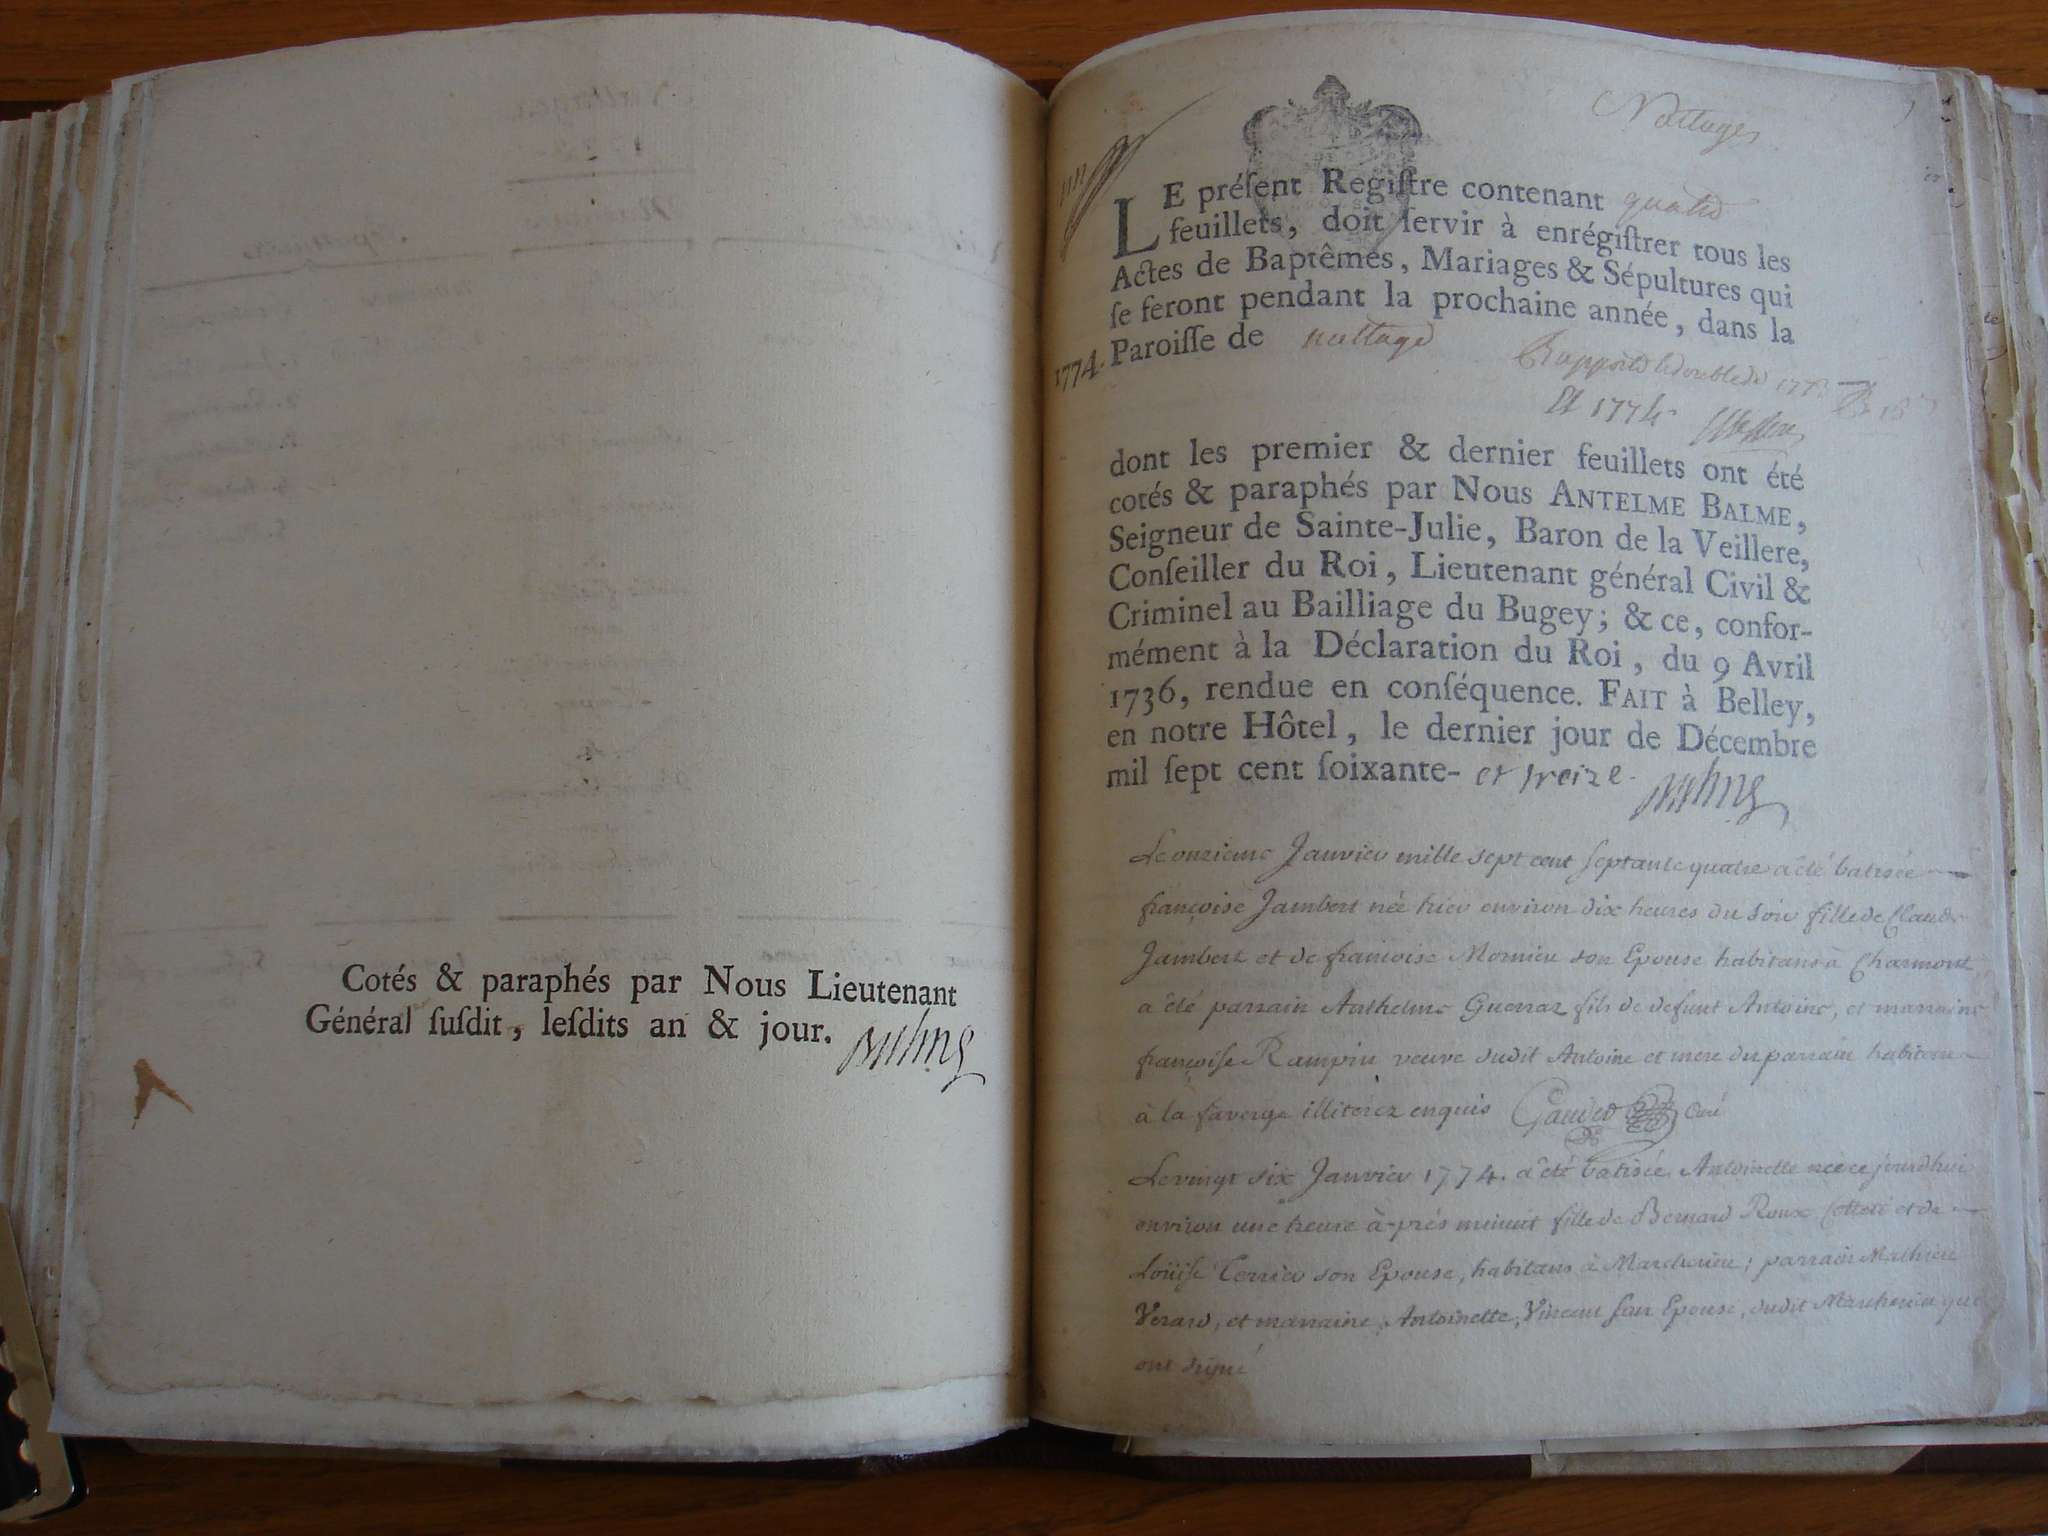 Cotés & paraphés par Nous Lieutenant
Général ſuſdit, leſdits an & jour.
Nattages
LE préſent Regiſtre contenant quatre
feuillets, doit ſervir à enrégiſtrer tous les
Actes de Baptêmes, Mariages & Sépultures qui
ſe feront pendant la prochaine année, dans la
1774. Paroiſſe de nattage
Et 1774.
dont les premier & dernier feuillets ont été
cotés & paraphés par Nous ANTELME BALME,
Seigneur de Sainte-Julie, Baron de la Veillere,
Conſeiller du Roi, Lieutenant général Civil &
Criminel au Bailliage du Bugey; & ce, confor-
mément à la Déclaration du Roi, du 9 Avril
1736, rendue en conſéquence. FAIT à Belley,
en notre Hôtel, le dernier jour de Décembre
mil ſept cent ſoixante- et treize.
Le onzieme Janvier mille sept cent septante quatre a été batisée
françoise Jambert née hier environ dix heures du soir fille de Claude
Jambert et de françoise Mornieu son Epouse habitans à Charmont,
a été parrain Anthelme Guerraz fils de defunt Antoine, et marraine
françoise Rampin veuve dudit Antoine et mere du parrain habitans
à la faverge illiterez enquis Gaudet Curé
Le vingt six Janvier 1774. a été batisée Antoinette née ce jourdhui
environ une heure à-prés minuit fille de Bernard Roux Collet et de
Loüise Terrier son Epouse, habitans à Marcherieu; parrain Mathieu
Verard, et marraine, Antoinette, Vincent son Epouse, dudit Marcherieu qui
ont signé